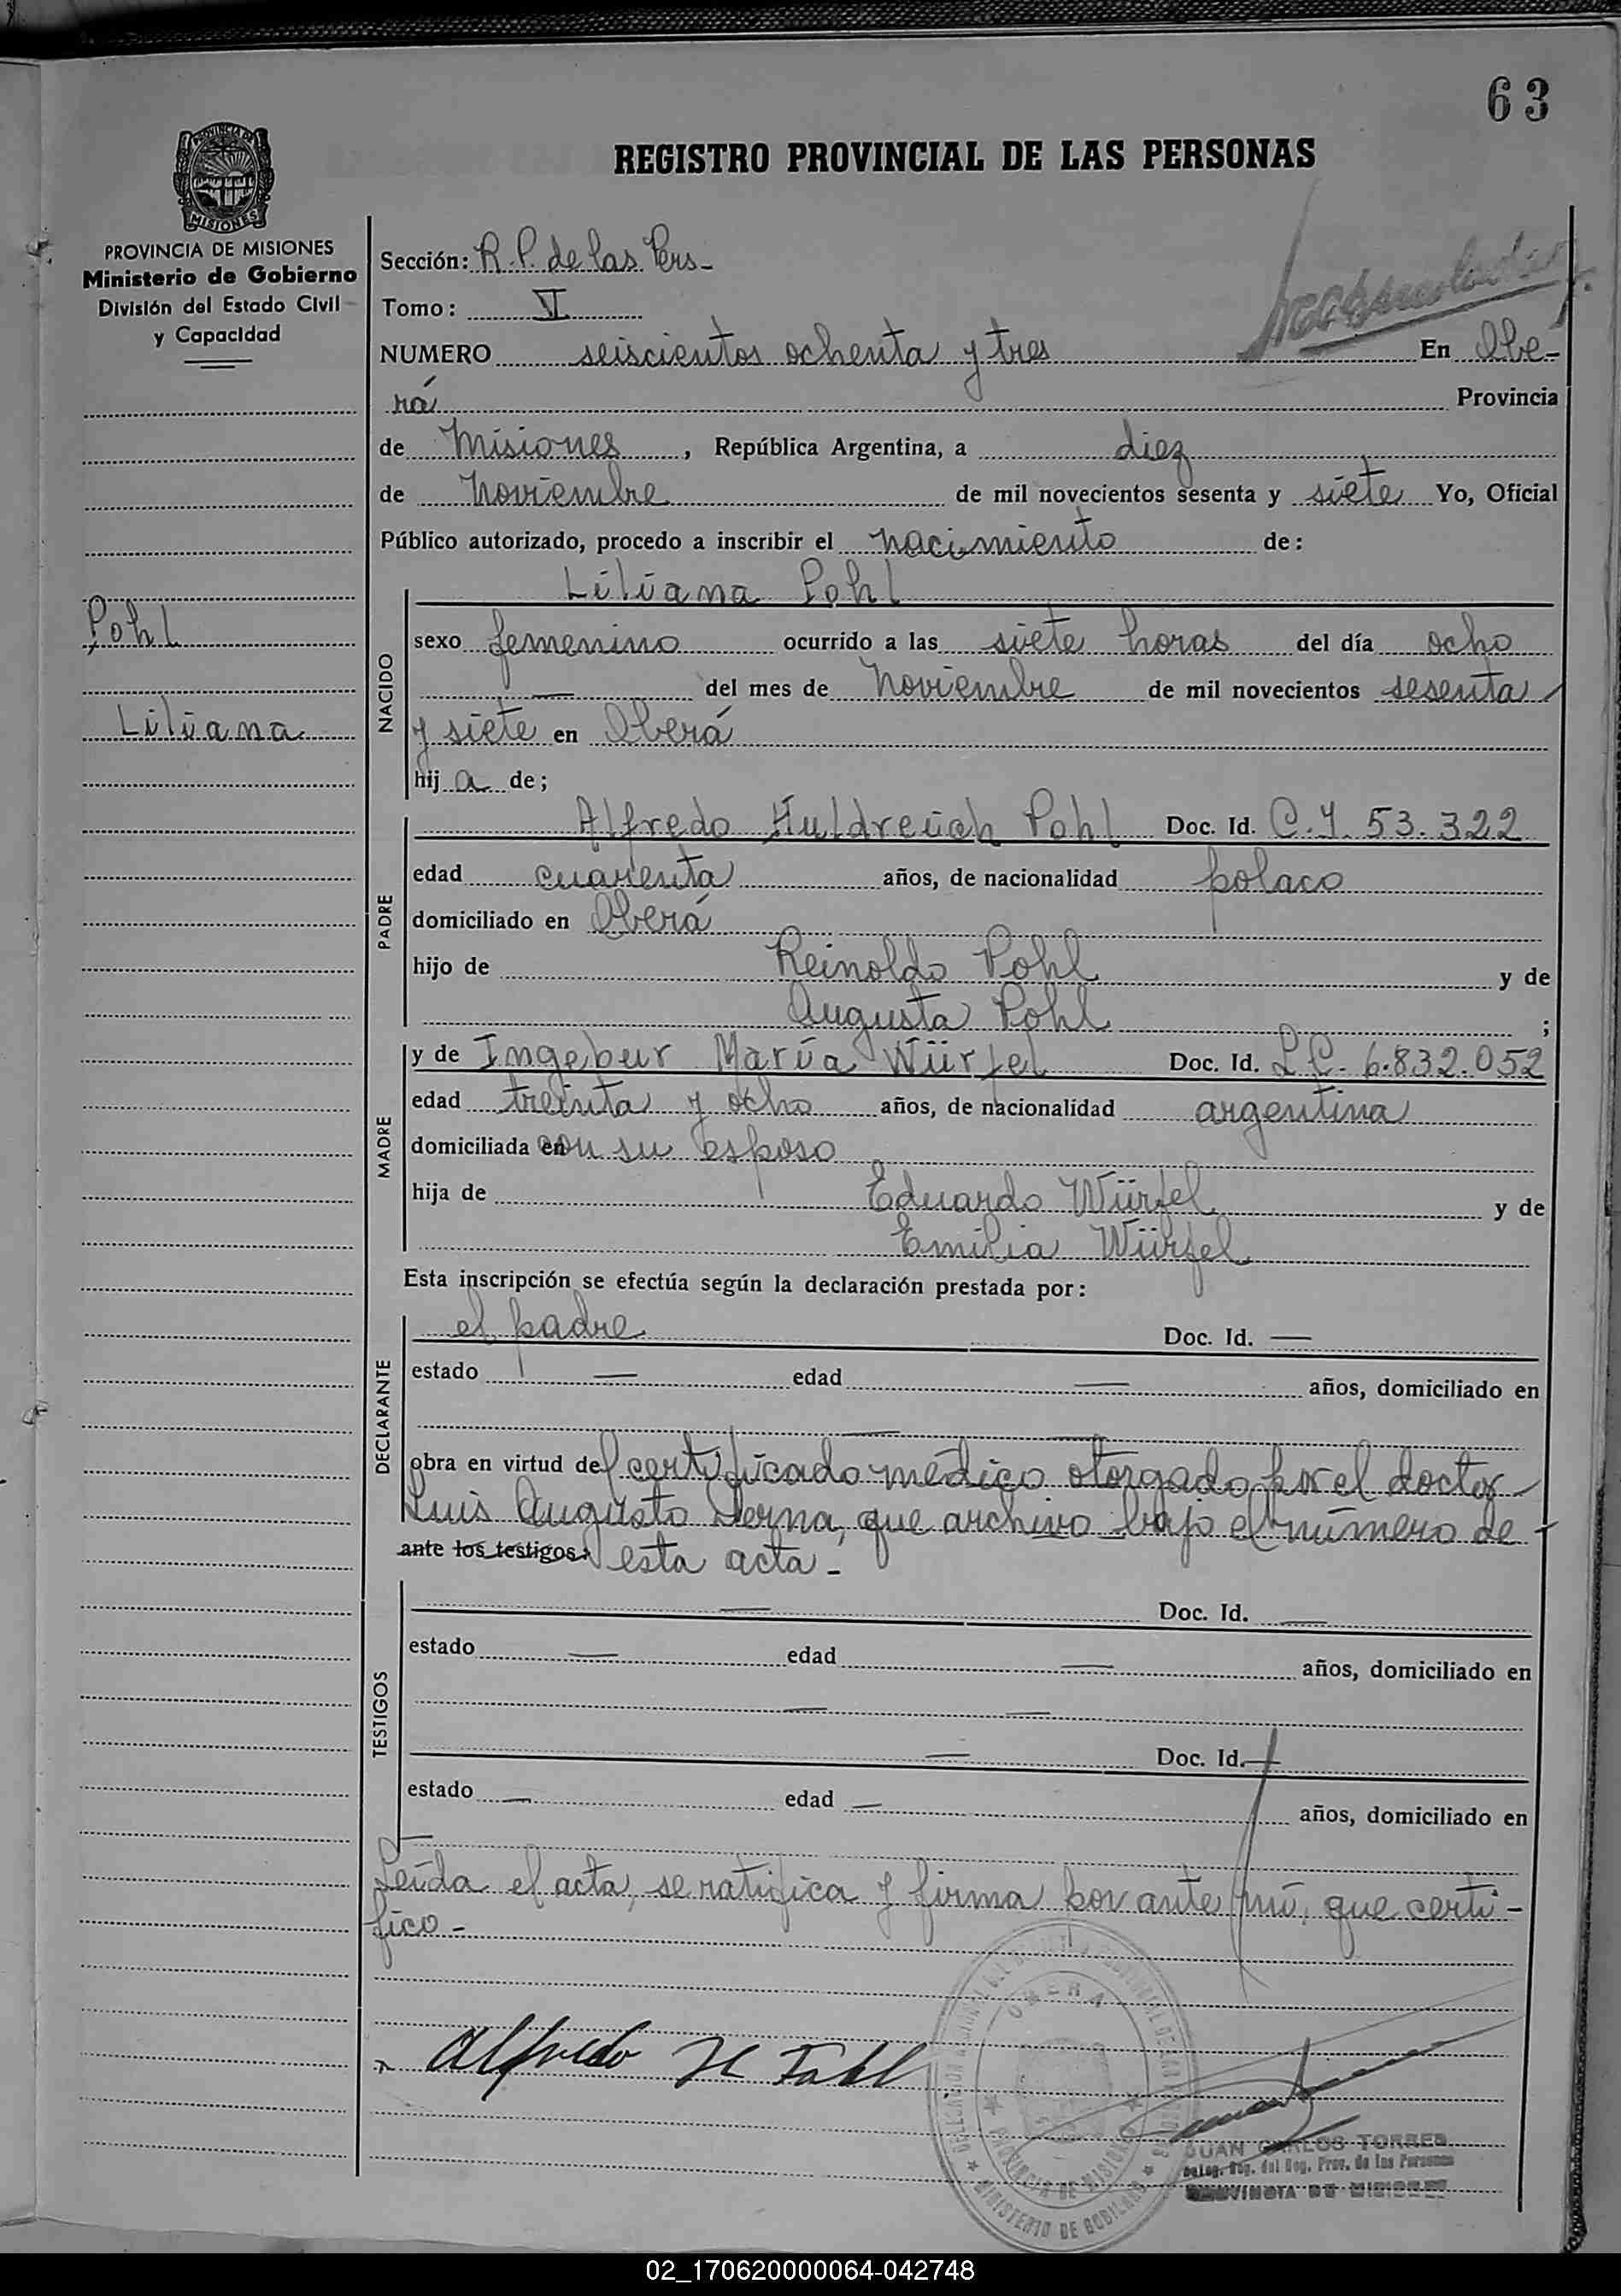 63
REGISTRO PROVINCIAL DE LAS PERSONAS
PROVINCIA DE MISIONES
MISIONES
PROVINCIA DE MISIONES
Ministerio de Gobierno
División del Estado Civil
y Capacidad
Sección: R. P. de las Pers-
Tomo: VI
NUMERO seiscientos ochenta y tres En Obe-
rá Provincia
de Misiones, República Argentina, a diez
de Noviembre de mil novecientos sesenta y siete Yo, Oficial
Público autorizado, procedo a inscribir el nacimiento de:
Liliana Pohl
Pohl
Liliana
NACIDO
sexo femenino ocurrido a las siete horas del día ocho
— del mes de Noviembre de mil novecientos sesenta
y siete en Oberá
hij a de;
PADRE
Alfredo Huldreich Pohl Doc. Id. C.I. 53.322
edad cuarenta años, de nacionalidad polaco
domiciliado en Oberá
hijo de Reinoldo Pohl y de
Augusta Pohl ;
MADRE
y de Ingebur María Würfel Doc. Id. L.C. 6.832.052
edad treinta y ocho años, de nacionalidad argentina
domiciliada en con su esposo
hija de Eduardo Würfel y de
Emilia Würfel
Esta inscripción se efectúa según la declaración prestada por:
DECLARANTE
el padre Doc. Id. —
estado — edad — años, domiciliado en
— —
obra en virtud del certificado médico otorgado por el doctor
Luis Augusto Derna, que archivo bajo el número de
ante los testigos: esta acta-
TESTIGOS
— Doc. Id. —
estado — edad — años, domiciliado en
— —
— Doc. Id. —
estado — edad — años, domiciliado en
Leída el acta, se ratifica y firma por ante mí, que certi-
fico-
Alfredo H Pohl
OBERA
PROVINCIA DE MISIONES
MINISTERIO DE GOBIERNO
JUAN CARLOS TORRES
Deleg. Reg. del Reg. Prov. de las Personas
PROVINCIA DE MISIONES
02_170620000064-042748